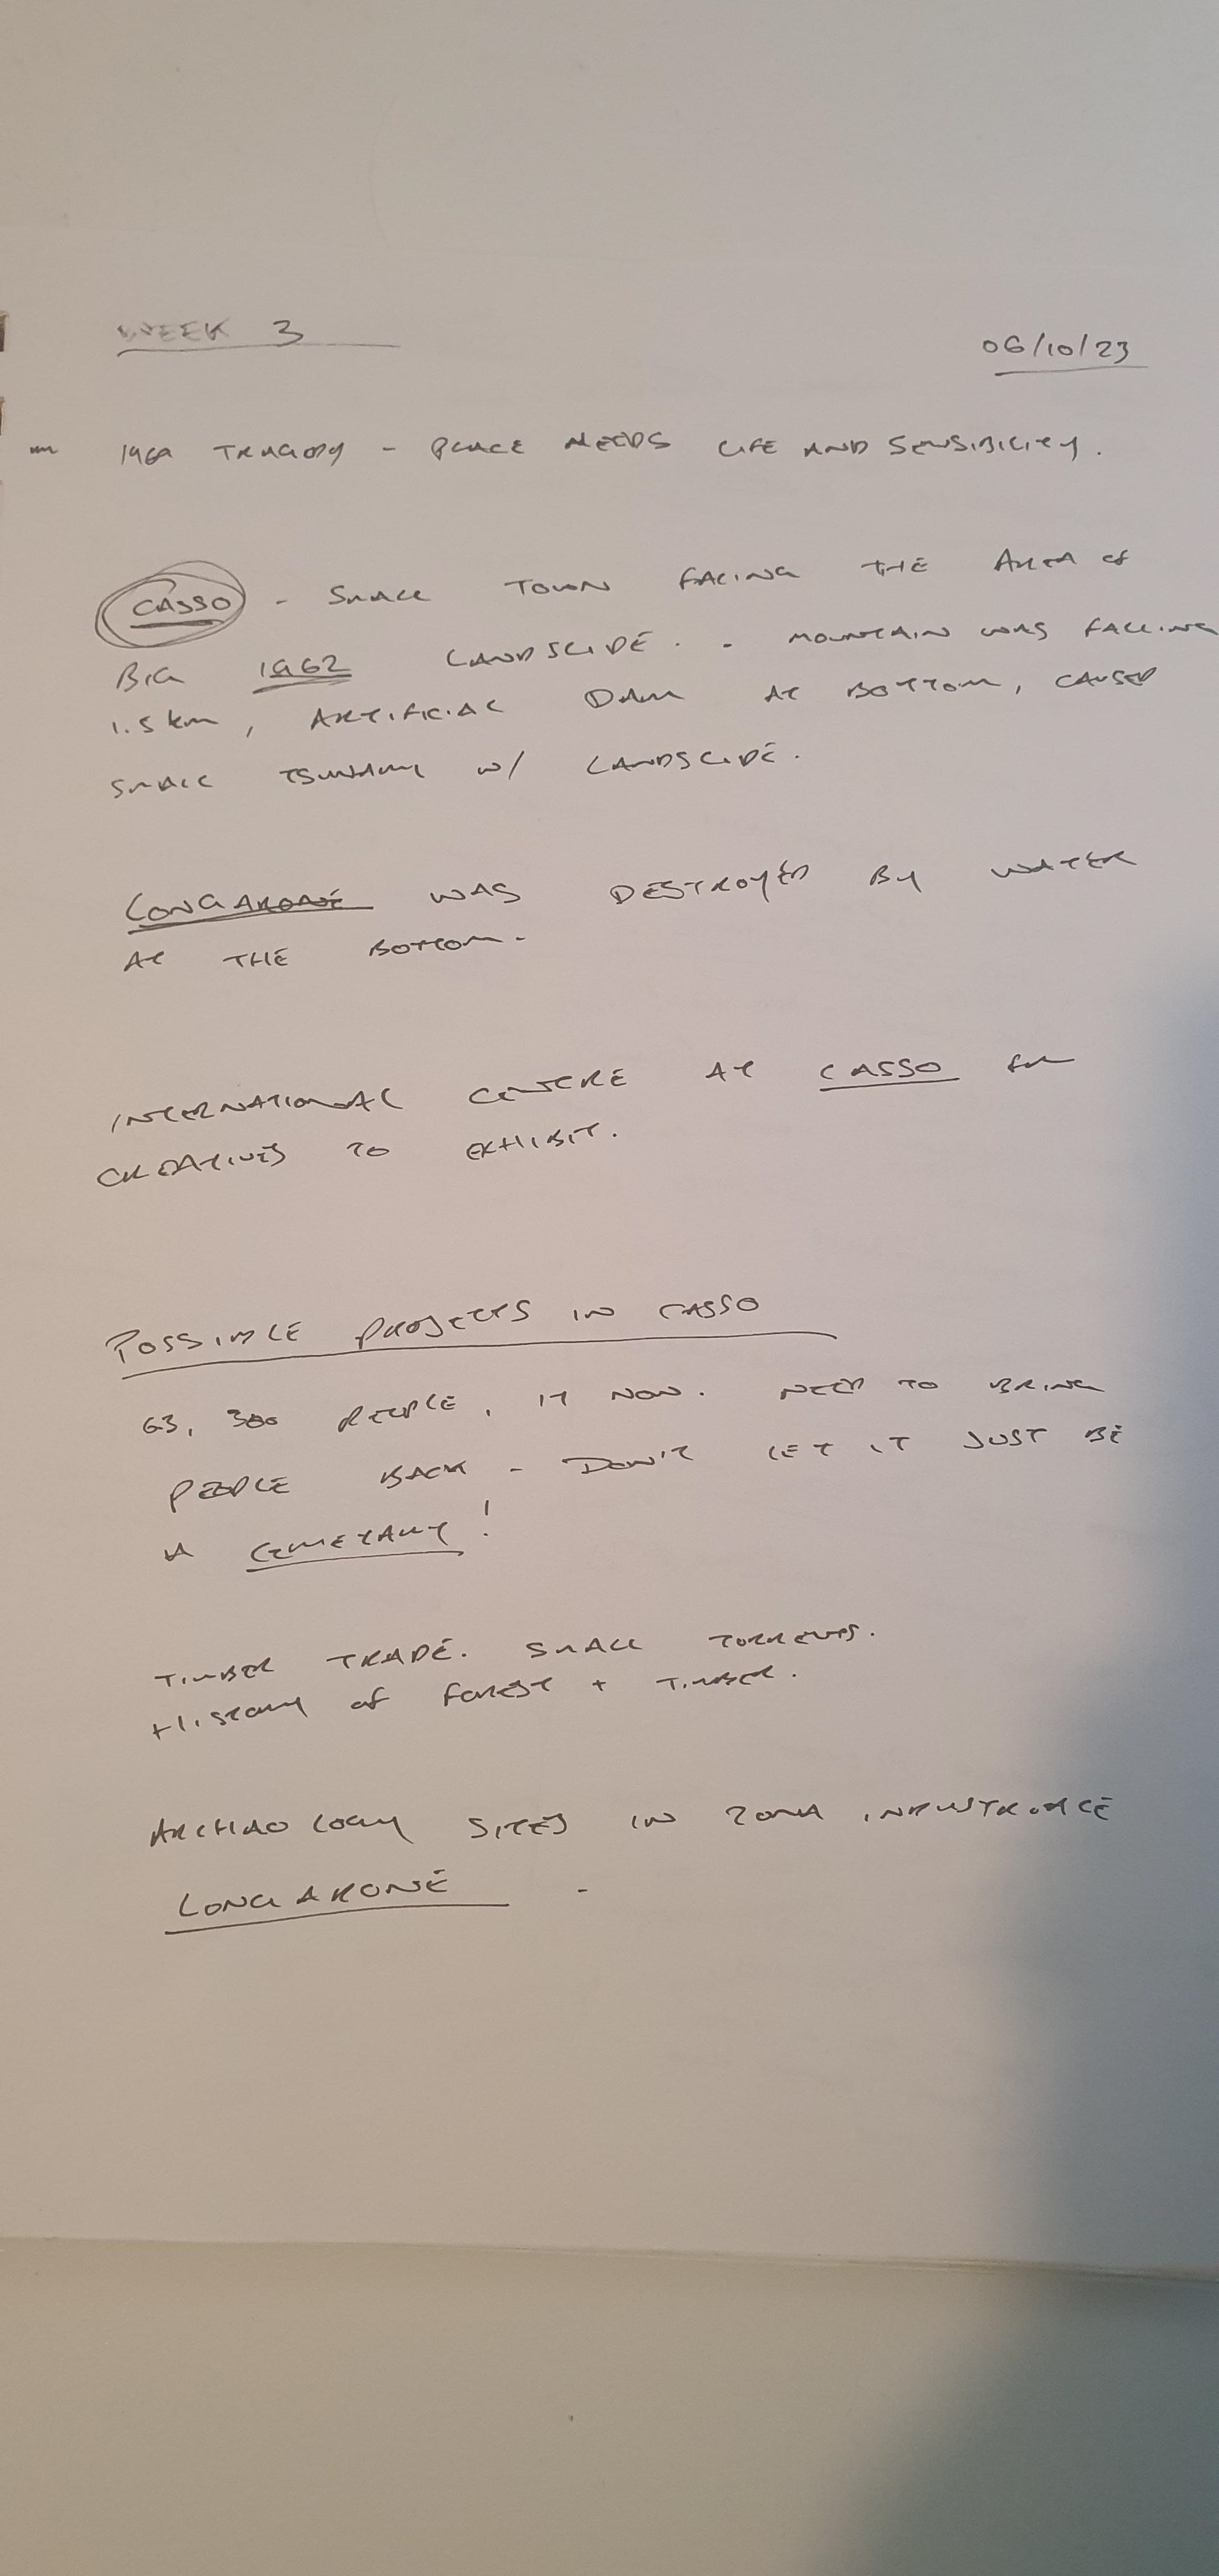 WEEK 3
06/10/23
1969 TRAGODY - PLACE NEEDS LIFE AND SENSIBILITY.
CASSO - SMALL TOWN FACING THE AREA of
BIG 1962 LANDSLIDE. - MOUNTAIN WAS FALLING
1.5 km, ARTIFICIAL DAM AT BOTTOM, CAUSED
SMALL TSUNAMI w/ LANDSLIDE.
LONGARONE WAS DESTROYED BY WATER
AT THE BOTTOM.
INTERNATIONAL CENTRE AT CASSO for
CREATIVES TO EXHIBIT.
POSSIBLE PROJECTS IN CASSO
63, 300 PEOPLE, 17 NOW. NEED TO BRING
PEOPLE BACK - DON'T LET IT JUST BE
A CEMETARY!
TIMBER TRADE. SMALL TORRENTS.
HISTORY of FOREST + TIMBER.
ARCHAOLOGY SITES IN ZONA INDUSTRIALE
LONGARONE -